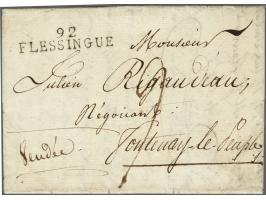 92
FLESSINGUE
Monsieur
Julien Rigaudeau,
Négociant
Vendée
Fontenay-le-Peuple